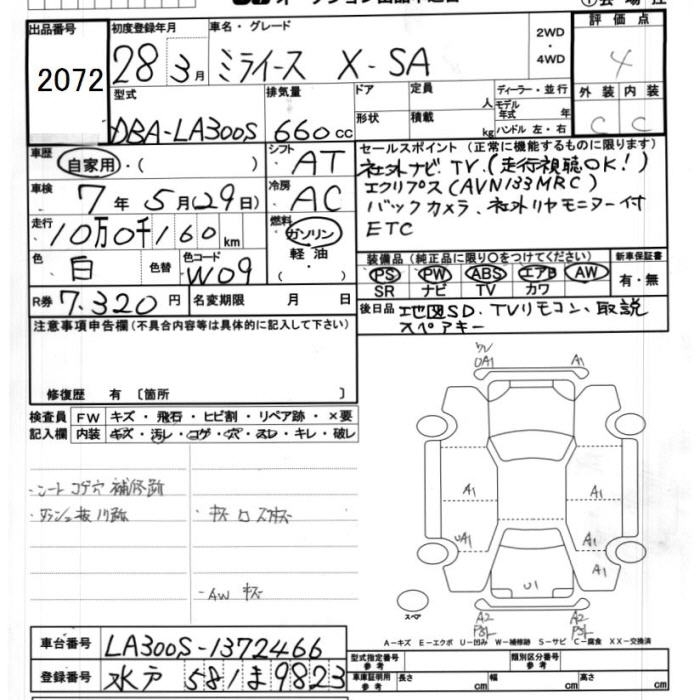 出品番号 2072
初度登録年月 28年 3月
車名・グレード ミライース X-SA
2WD・4WD
評価点 4
外装 C 内装 C
型式 DBA-LA300S
排気量 660cc
ドア 形状
定員 人 積載 kg
ディーラー・並行
モデル年式 年
ハンドル 左・右
車歴 自家用・( )
シフト AT
車検 7年 5月(29日)
冷房 AC
走行 10万0千160km
燃料 ガソリン・軽油・( )
色 白 色替 色コード W09
R券 7.320円
名変期限 月 日
セールスポイント (正常に機能するものに限ります)
社外ナビ.TV.(走行視聴OK!)
エクリプス(AVN133MRC)
バックカメラ、社外リヤモニター付
ETC
装備品(純正品に限り○をつけてください) 新車保証書
PS PW ABS エアB AW 有・無
SR ナビ TV カワ
後日品 地図SD.TVリモコン、取説
スペアキー
注意事項申告欄(不具合内容等は具体的に記入して下さい)
修復歴 有〔箇所 〕
検査員記入欄 FW キズ・飛石・ヒビ割・リペア跡・×要
内装 キズ・汚レ・コゲ・穴・スレ・キレ・破レ
・シートコゲ穴補修跡
・ダッシュ
・キズ
・AW キズ
A1
A1
A1
A1
UA1
A1
A1
U1
A2
A2
スペア
A-キズ E-エクボ U-凹み W-補修跡 S-サビ C-腐食 XX-交換済
車台番号 LA300S-1372466
登録番号 水戸 581 ま 9823
型式指定番号 参考 類別区分番号 参考
車庫証明用 参考 長さ cm 幅 cm 高さ cm